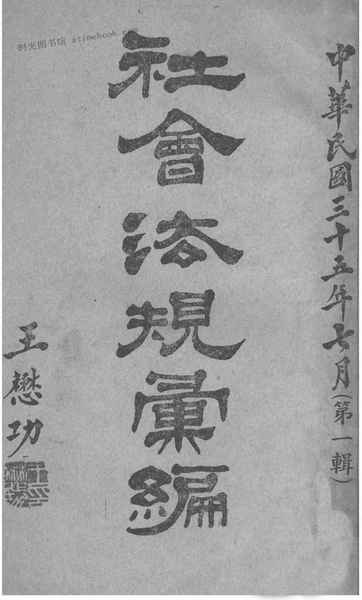 中華民國三十五年七月(第一輯)
社會法規彙編
王懋功
时光图书馆